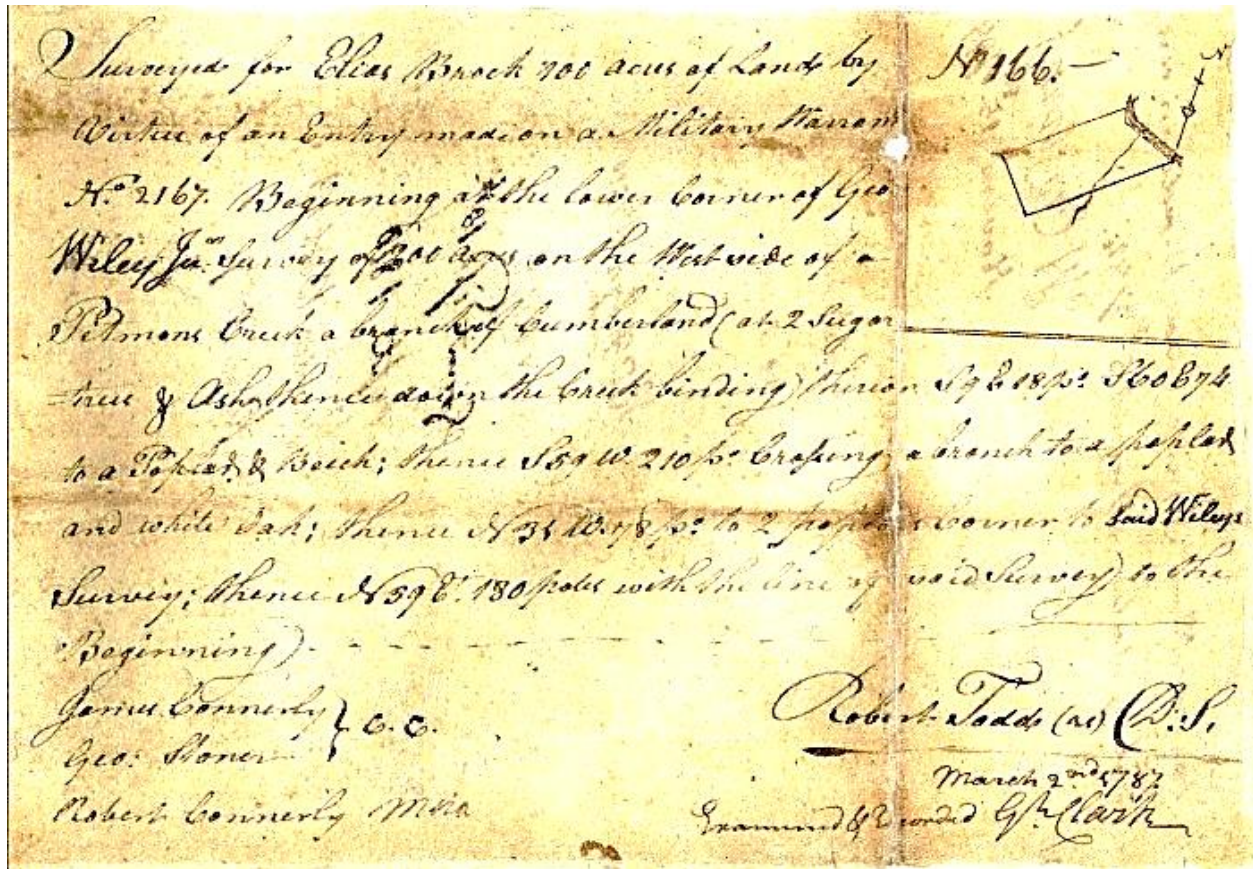 Surveyed for Elias Brock 100 acres of Land by
Virtue of an Entry made on a Military Warrant
No. 2167. Beginning at the lower Corner of Geo
Wiley Jun. Survey of 200 acres on the West side of
Pitmans Creek a branch of Cumberland (at 2 Sugar
trees & Ash thence down the Creek binding thereon S 9 E 18 po. S 60 E 74
to a Poplar & Beich; thence S 59 W. 210 po. Crossing a branch to a poplar
and white Oak; thence N 35 W. 78 po. to 2 poplars corner to Said Wileys
Survey; thence N 59 E. 180 poles with the line of said Survey to the
Beginning)
James Connerly } C.C.
Geo: Stoner
Robert Connerly
No 166.
Robert Todd (as) D:S.
March 2nd 1787
Examined & Recorded Clark